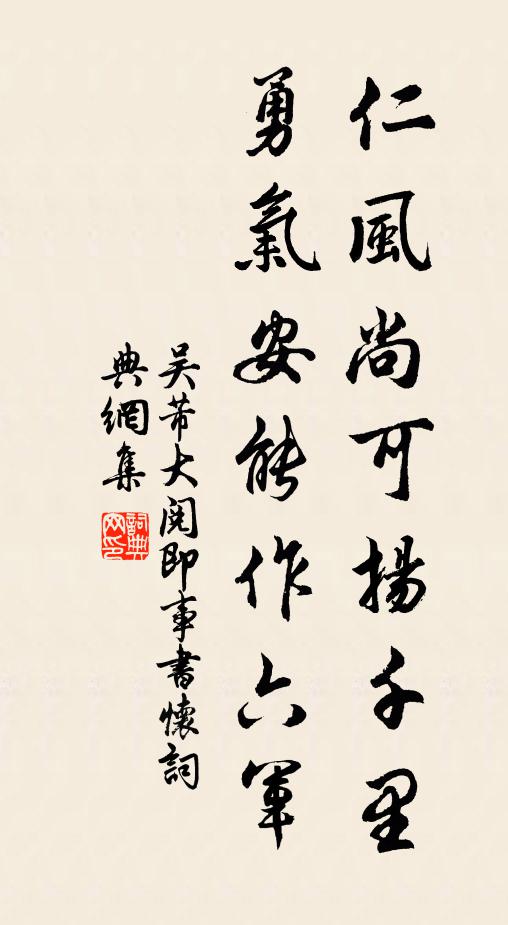 仁風尚可揚千里
勇氣安能作六軍
吳芾大閱即事書懷詞
典網集
詞典
网印